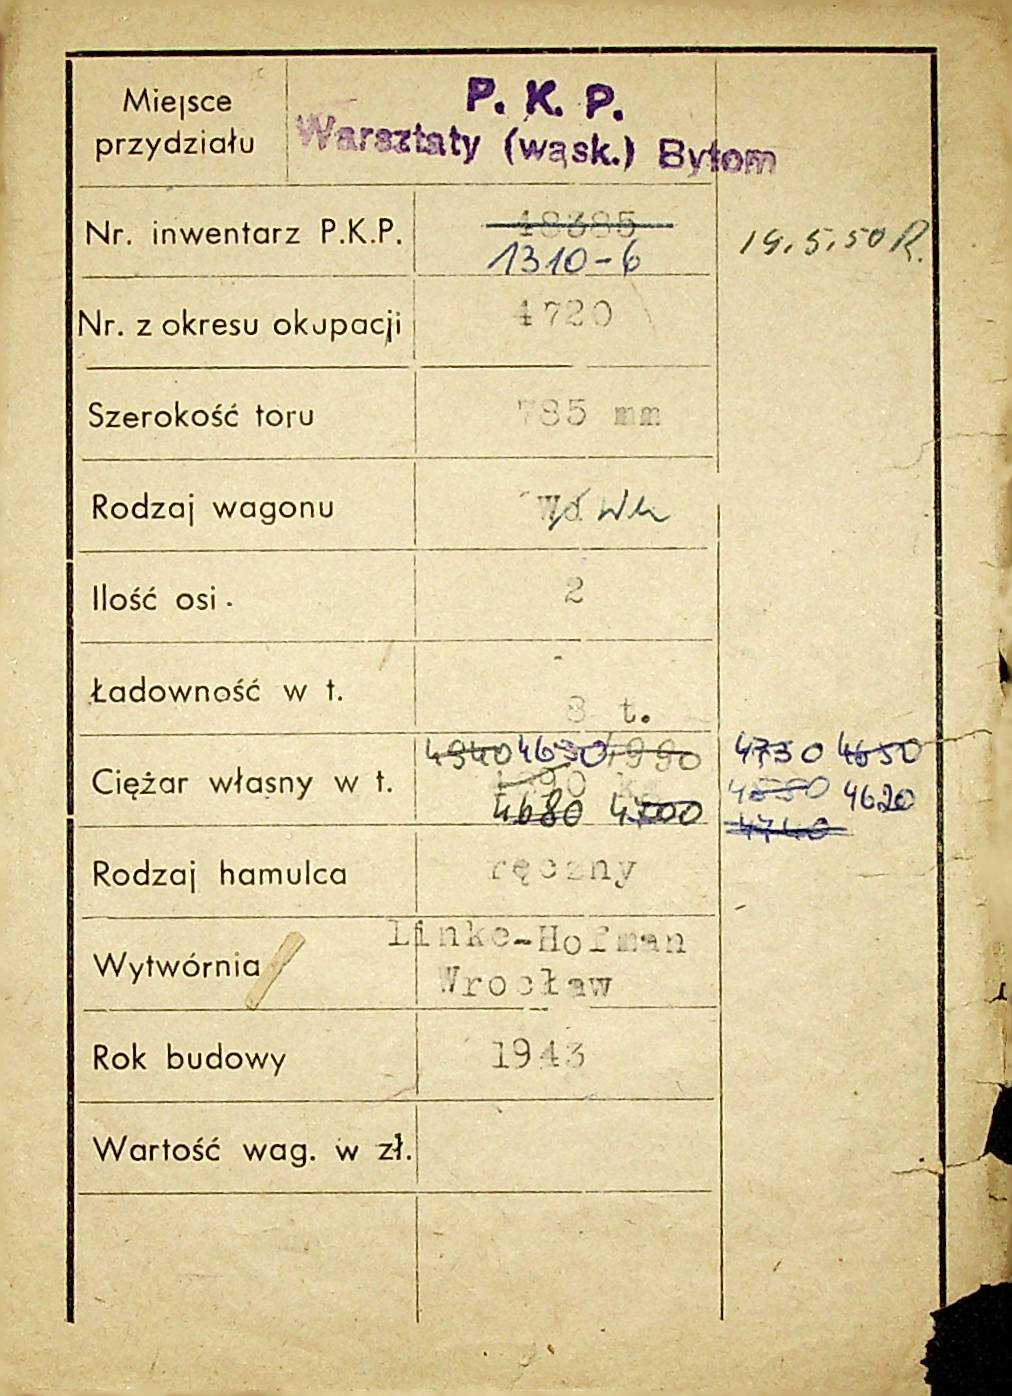 Miejsce
przydziału
P. K. P.
Warsztaty (wąsk.) Bytom
Nr. inwentarz P.K.P.
48385
1310-6
19.5.50 R.
Nr. z okresu okupacji
4720
Szerokość toru
785 mm
Rodzaj wagonu
Ilość osi.
2
Ładowność w t.
8 t.
Ciężar własny w t.
4940 4630 4730 4650
4620
4680 4700
4740
Rodzaj hamulca
ręczny
Wytwórnia
Linke-Hofman
Wrocław
Rok budowy
1943
Wartość wag. w zł.